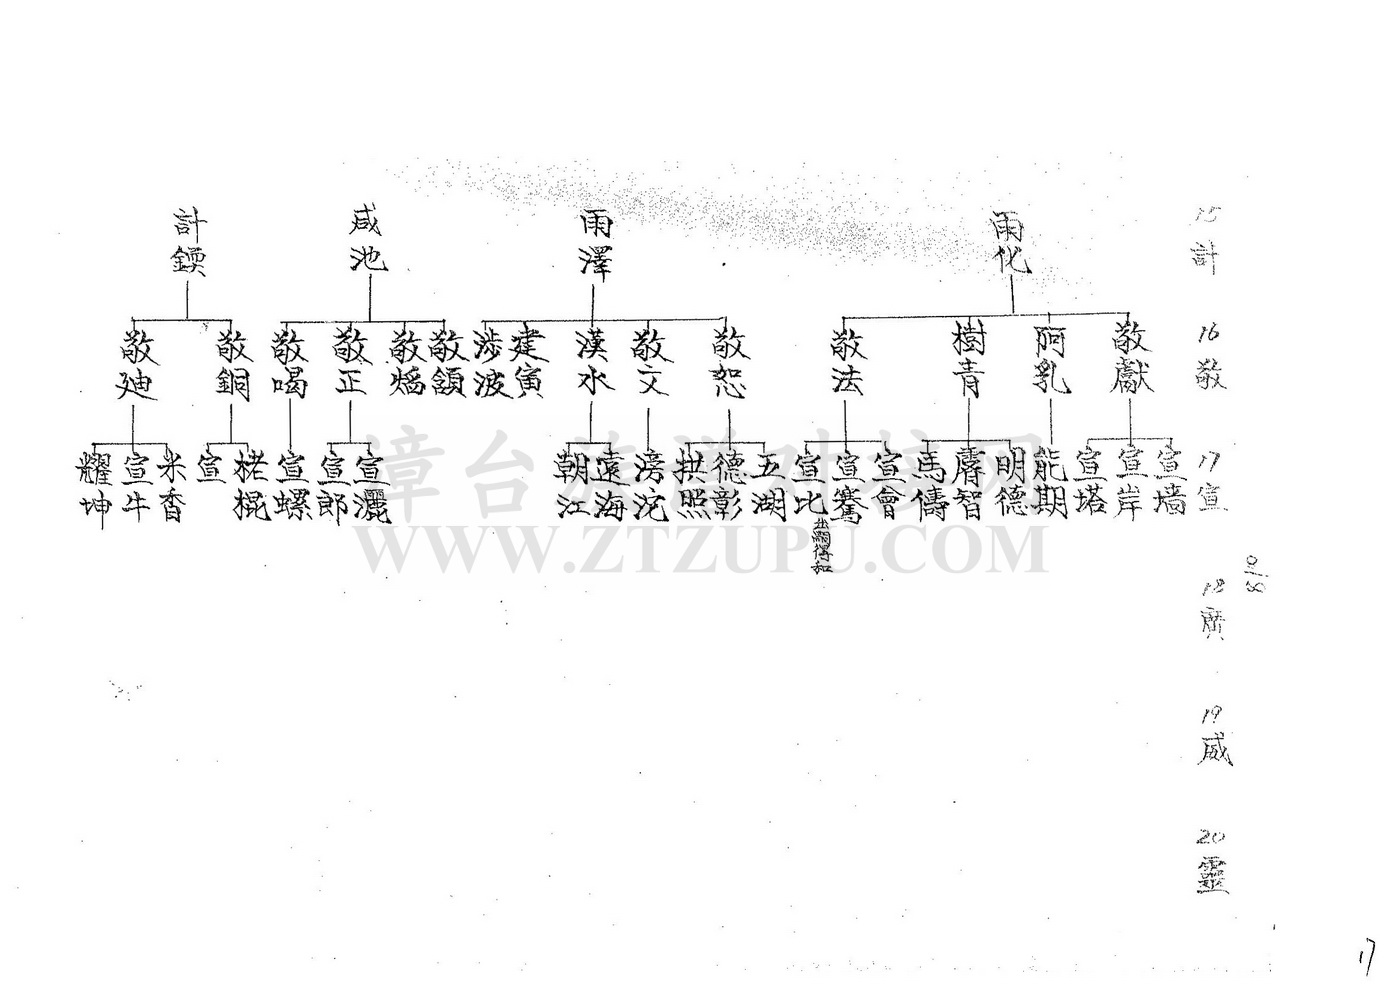 15 計
16 敬
17 宣
18 廣
19 威
20 靈
8/10
雨化
雨澤
咸池
計鍥
敬獻
阿乳
樹青
敬法
敬恕
敬文
漢水
建寅
涉波
敬額
敬熺
敬正
敬喝
敬銅
敬廸
宣墙
宣岸
宣塔
能期
明德
膚智
馬儔
宣會
宣騫
宣比
出嗣得和
五湖
德彰
拱照
滂沱
遠海
朝江
宣灑
宣郎
宣螺
宣
米香
宣牛
耀坤
漳台族谱对接网
WWW.ZTZUPU.COM
17